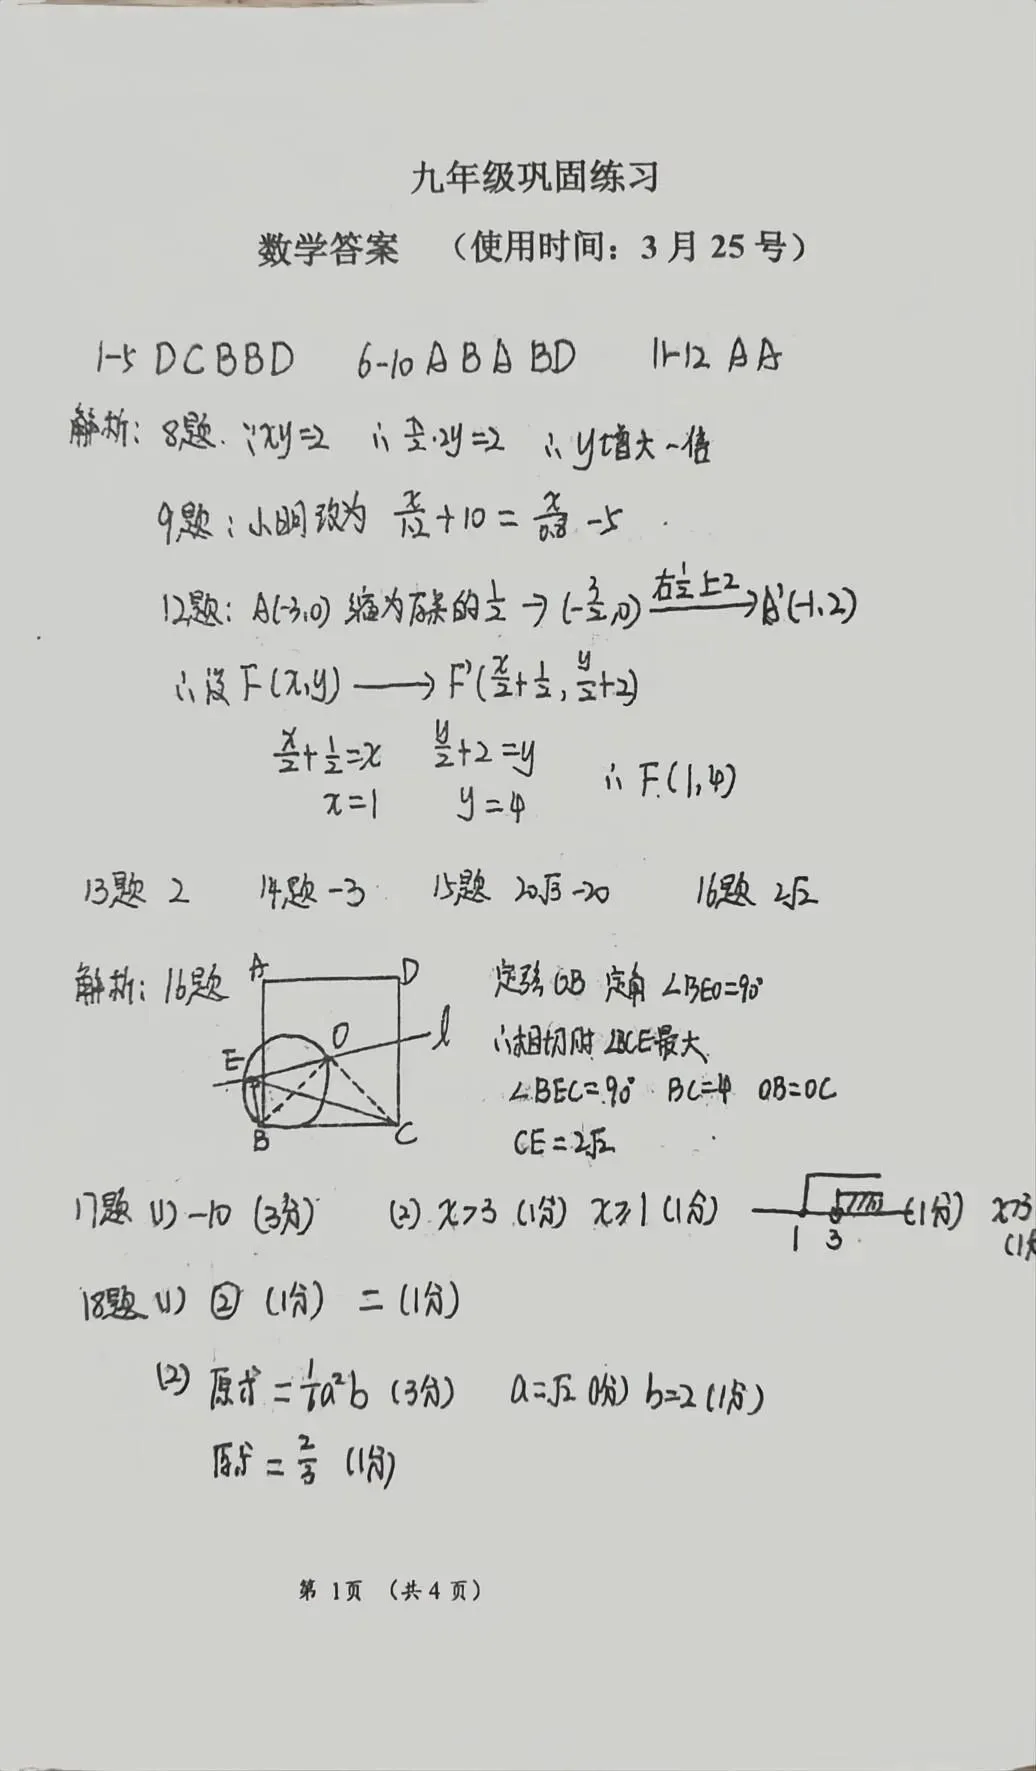 九年级巩固练习
数学答案 （使用时间：3月25号）
1-5 DCBBD 6-10 ABABD 11-12 AA
解析：8题. ∵xy=2 ∴ x/2·2y=2 ∴ y增大一倍
9题：小明改为 x/1.2+10=x/0.8-5
12题：A(-3,0) 缩为原来的1/2 → (-3/2,0) 右1/2上2→A'(-1,2)
∴设F(x,y) ⟶ F'(x/2+1/2, y/2+2)
x/2+1/2=x y/2+2=y
x=1 y=4 ∴ F(1,4)
13题 2 14题 -3 15题 20√3-20 16题 2√2
解析：16题 A D 定弦OB 定角∠BEO=90°
O l ∴相切时∠BCE最大
E ∠BEC=90° BC=4 OB=OC
B C CE=2√2
17题 (1) -10 (3分) (2) x>3 (1分) x≥1 (1分) 1 3 (1分) x>3
(1分
18题 (1) ② (1分) 二 (1分)
(2) 原式=1/6a²b (3分) a=√2 (1分) b=2 (1分)
原式=2/3 (1分)
第 1页 （共 4 页）